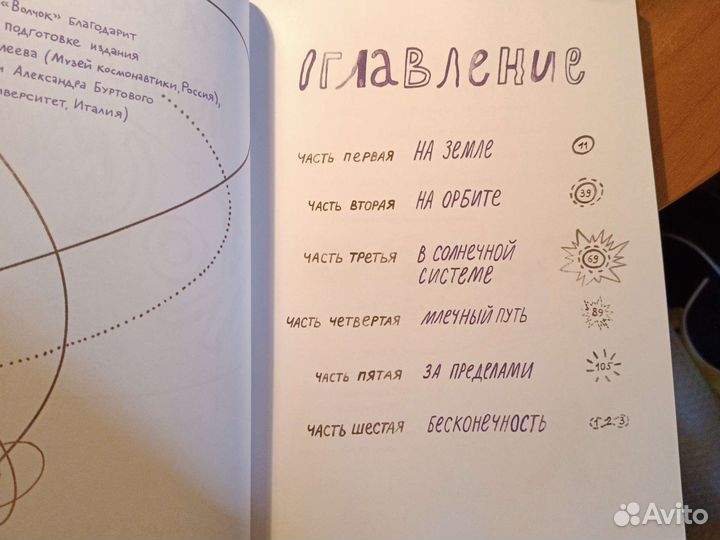 «Волчок» благодарит
подготовке издания
леева (Музей космонавтики, Россия),
и Александра Буртового
иверситет, Италия)
Оглавление
часть первая на земле 11
часть вторая на орбите 39
часть третья в солнечной системе 69
часть четвертая млечный путь 89
часть пятая за пределами 105
часть шестая бесконечность 123
Avito